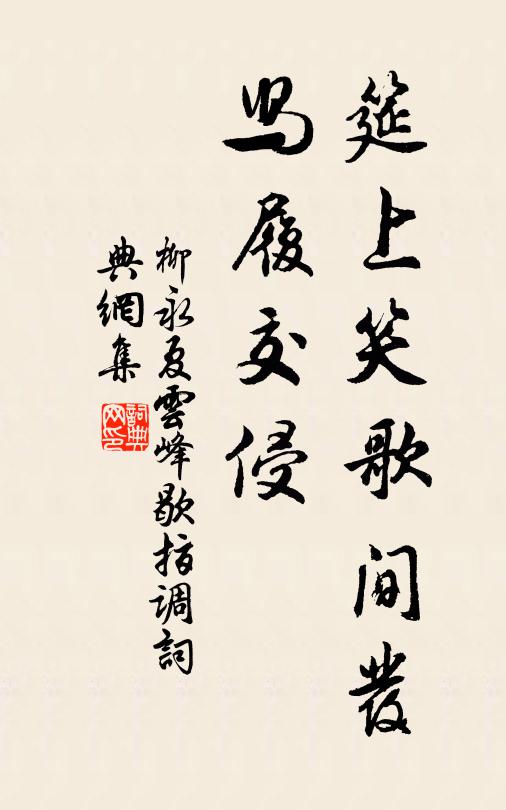 筵上笑歌间發
舄履交侵
柳永夏雲峰歇指调詞
典網集
詞典网印